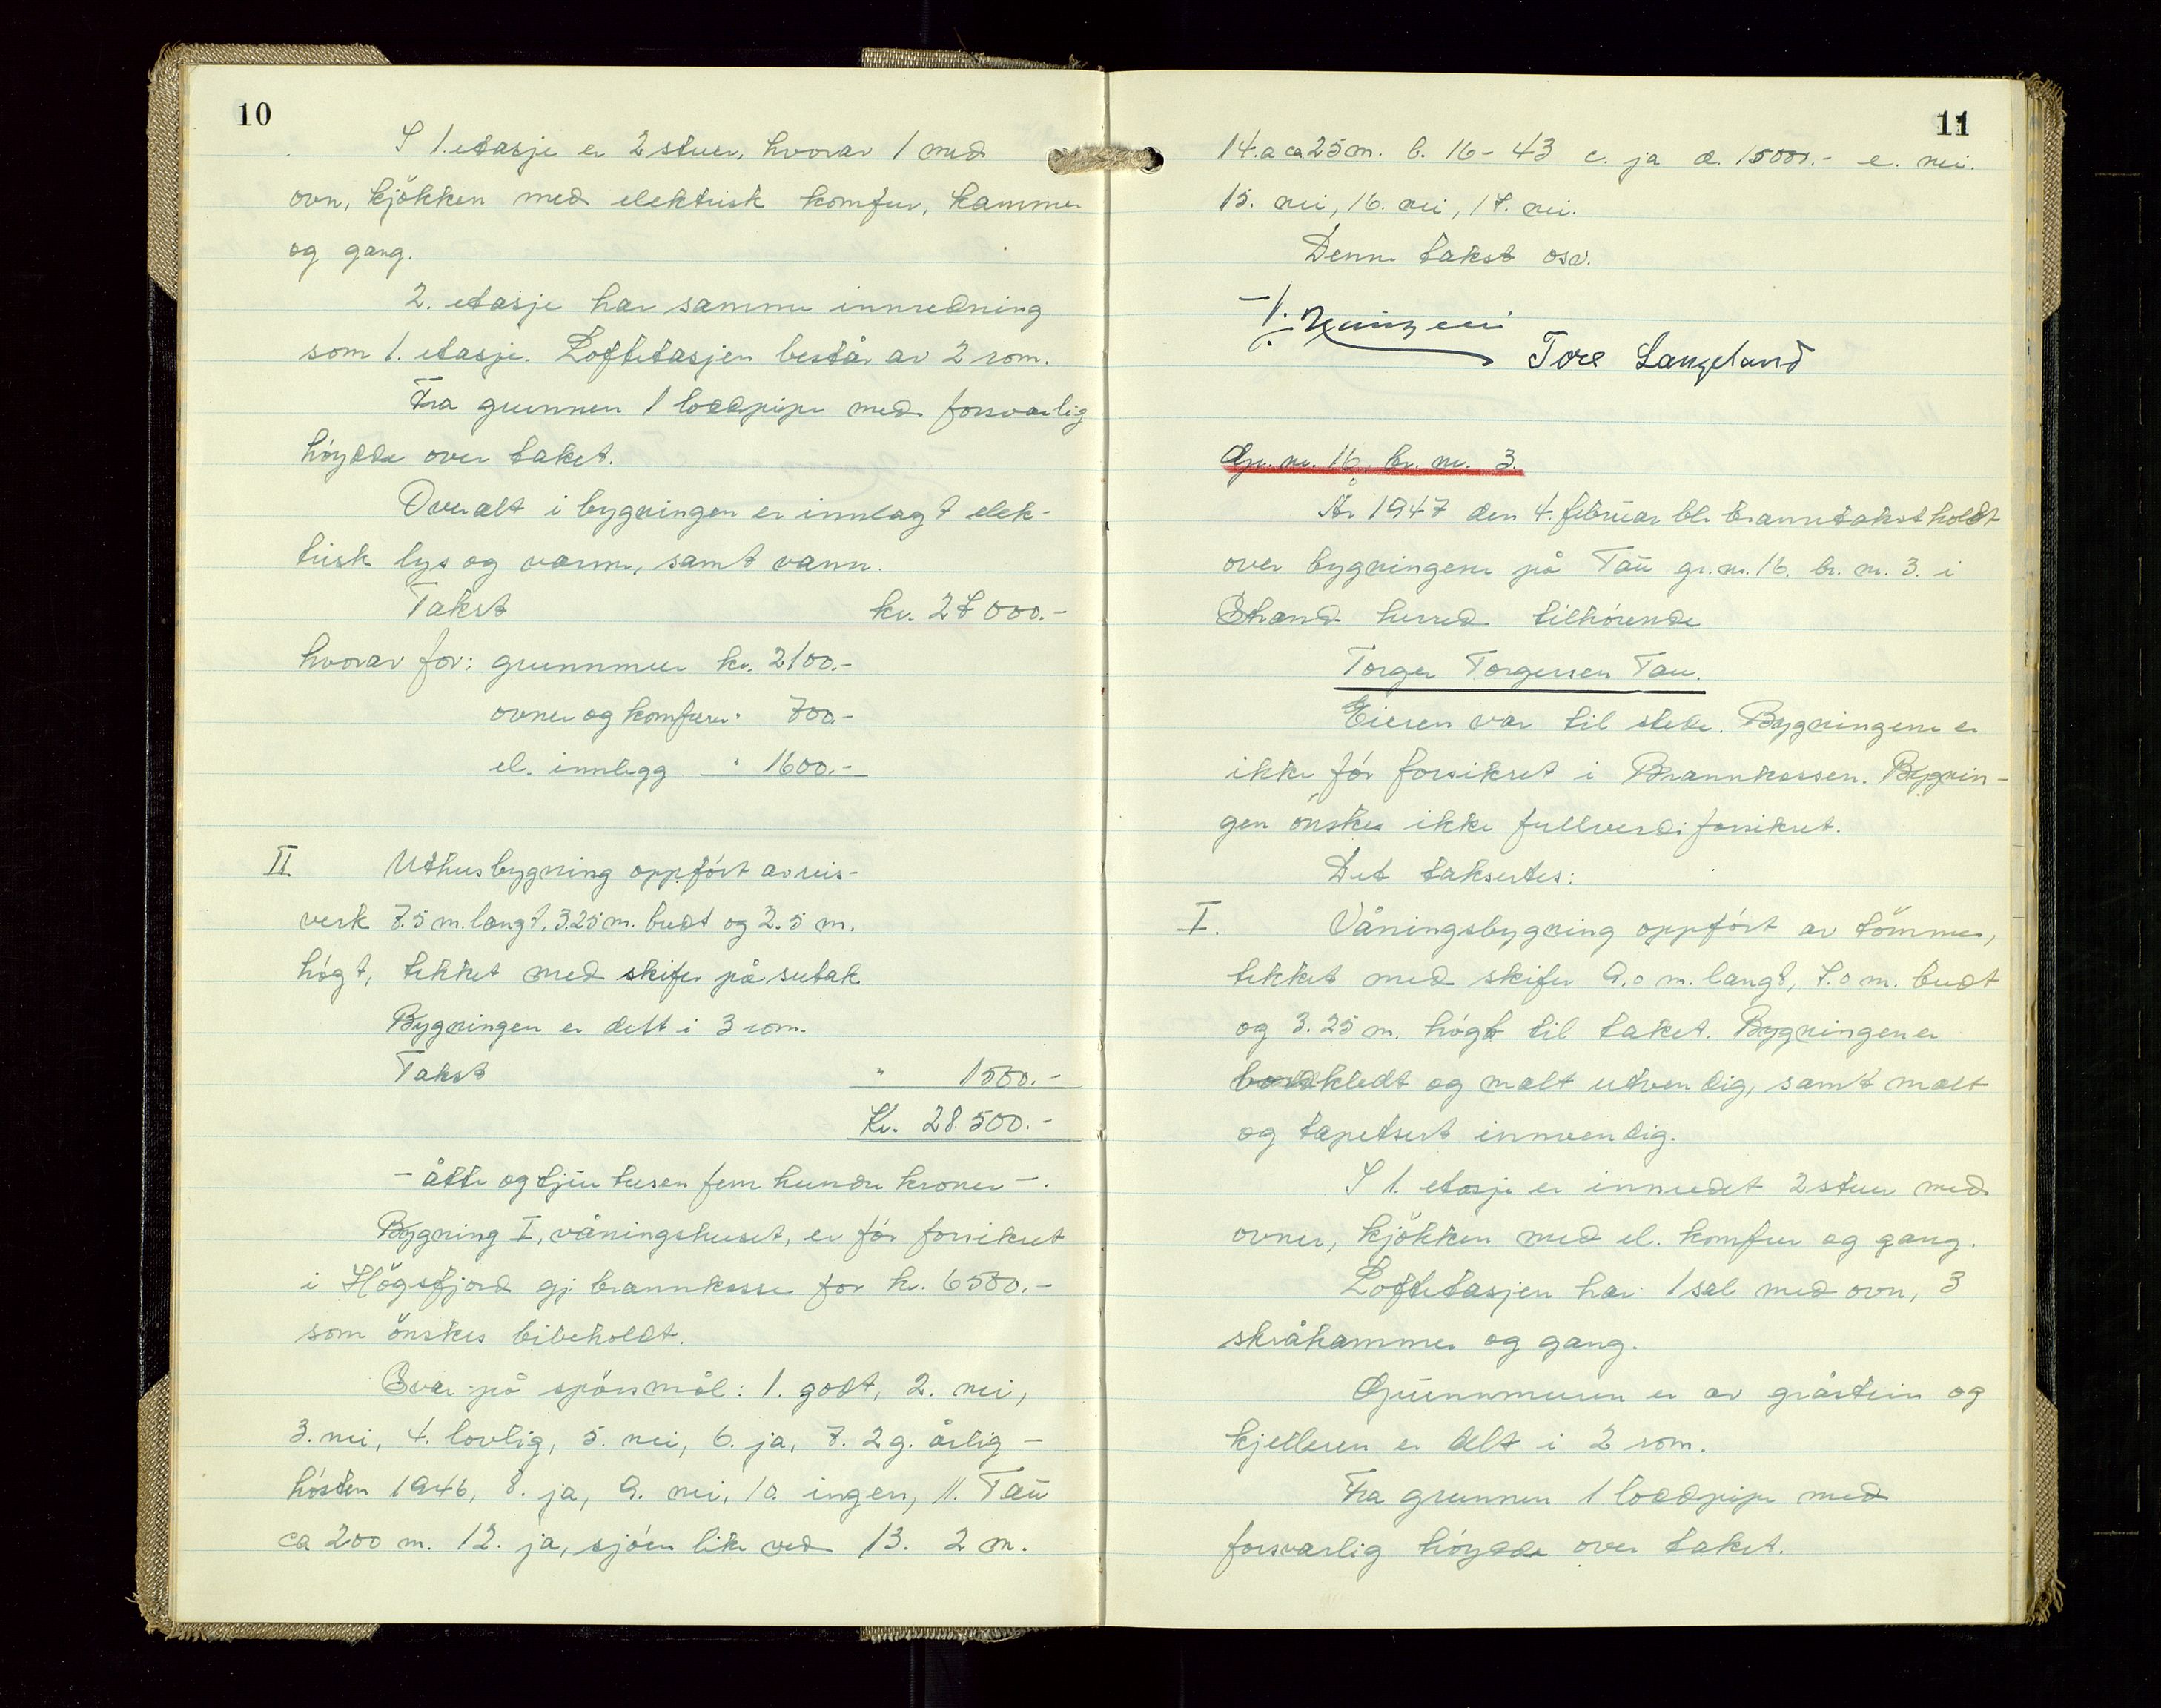 10
I 1. etasje er 2 stuer, hvorav 1 med
ovn, kjökken med elektrisk komfur, kammer
og gang.
2. etasje har samme innredning
som 1. etasje. Loftetasjen består av 2 rom.
Fra grunnen 1 loddpipe med forsvarlig
höydde over taket.
Overalt i bygningen er innlagt elek-
trisk lys og varme, samt vann.
Takst kr. 27 000.-
hvorav for: grunnmur kr. 2100.-
ovner og komfurer " 700.-
el. innlegg " 1600.-
II. Uthusbygning oppfört av reis-
verk 7.5 m. langt, 3.25 m. bredt og 2.5 m.
högt, tekket med skifer på sutak.
Bygningen er delt i 3 rom.
Takst " 1500.-
Kr. 28 500.-
- åtte og tjue tusen fem hundre kroner -.
Bygning I, våningshuset, er för forsikret
i Högsfjord gj. brannkasse for kr. 6500.-
som önskes bibeholdt.
Svar på spörsmål: 1. godt, 2. nei,
3. nei, 4. lovlig, 5. nei, 6. ja, 7. 2 g. årlig -
hösten 1946, 8. ja, 9. nei, 10. ingen, 11. Tau
ca 200 m. 12. ja, sjöen like ved 13. 2 m.
11
14. a ca 25 m. b. 16 - 43 c. ja d. 15000.- e. nei.
15. nei, 16. nei, 17. nei.
Denne takst osv.
Tore Langeland
Gr. nr. 16, br. nr. 3.
År 1947 den 4. februar ble branntakst holdt
over bygningene på Tau gr. nr. 16. br. nr. 3. i
Strand herred tilhörende
Torger Torgersen Tau.
Eieren var til stede. Bygningene er
ikke för forsikret i Brannkassen. Bygnin-
gen önskes ikke fullverdiforsikret.
Det taksertes:
I. Våningsbygning oppfört av tömmer,
tekket med skifer 9.0 m. langt, 7.0 m. bredt
og 3.25 m. högt til taket. Bygningen er
bordkledt og malt utvendig, samt malt
og tapetsert innvendig.
I 1. etasje er innredet 2 stuer med
ovner, kjökken med el. komfur og gang.
Loftetasjen har 1 sal med ovn, 3
skråkammer og gang.
Grunnmuren er av gråstein og
kjelleren er delt i 2 rom.
Fra grunnen 1 loddpipe med
forsvarlig höydde over taket.